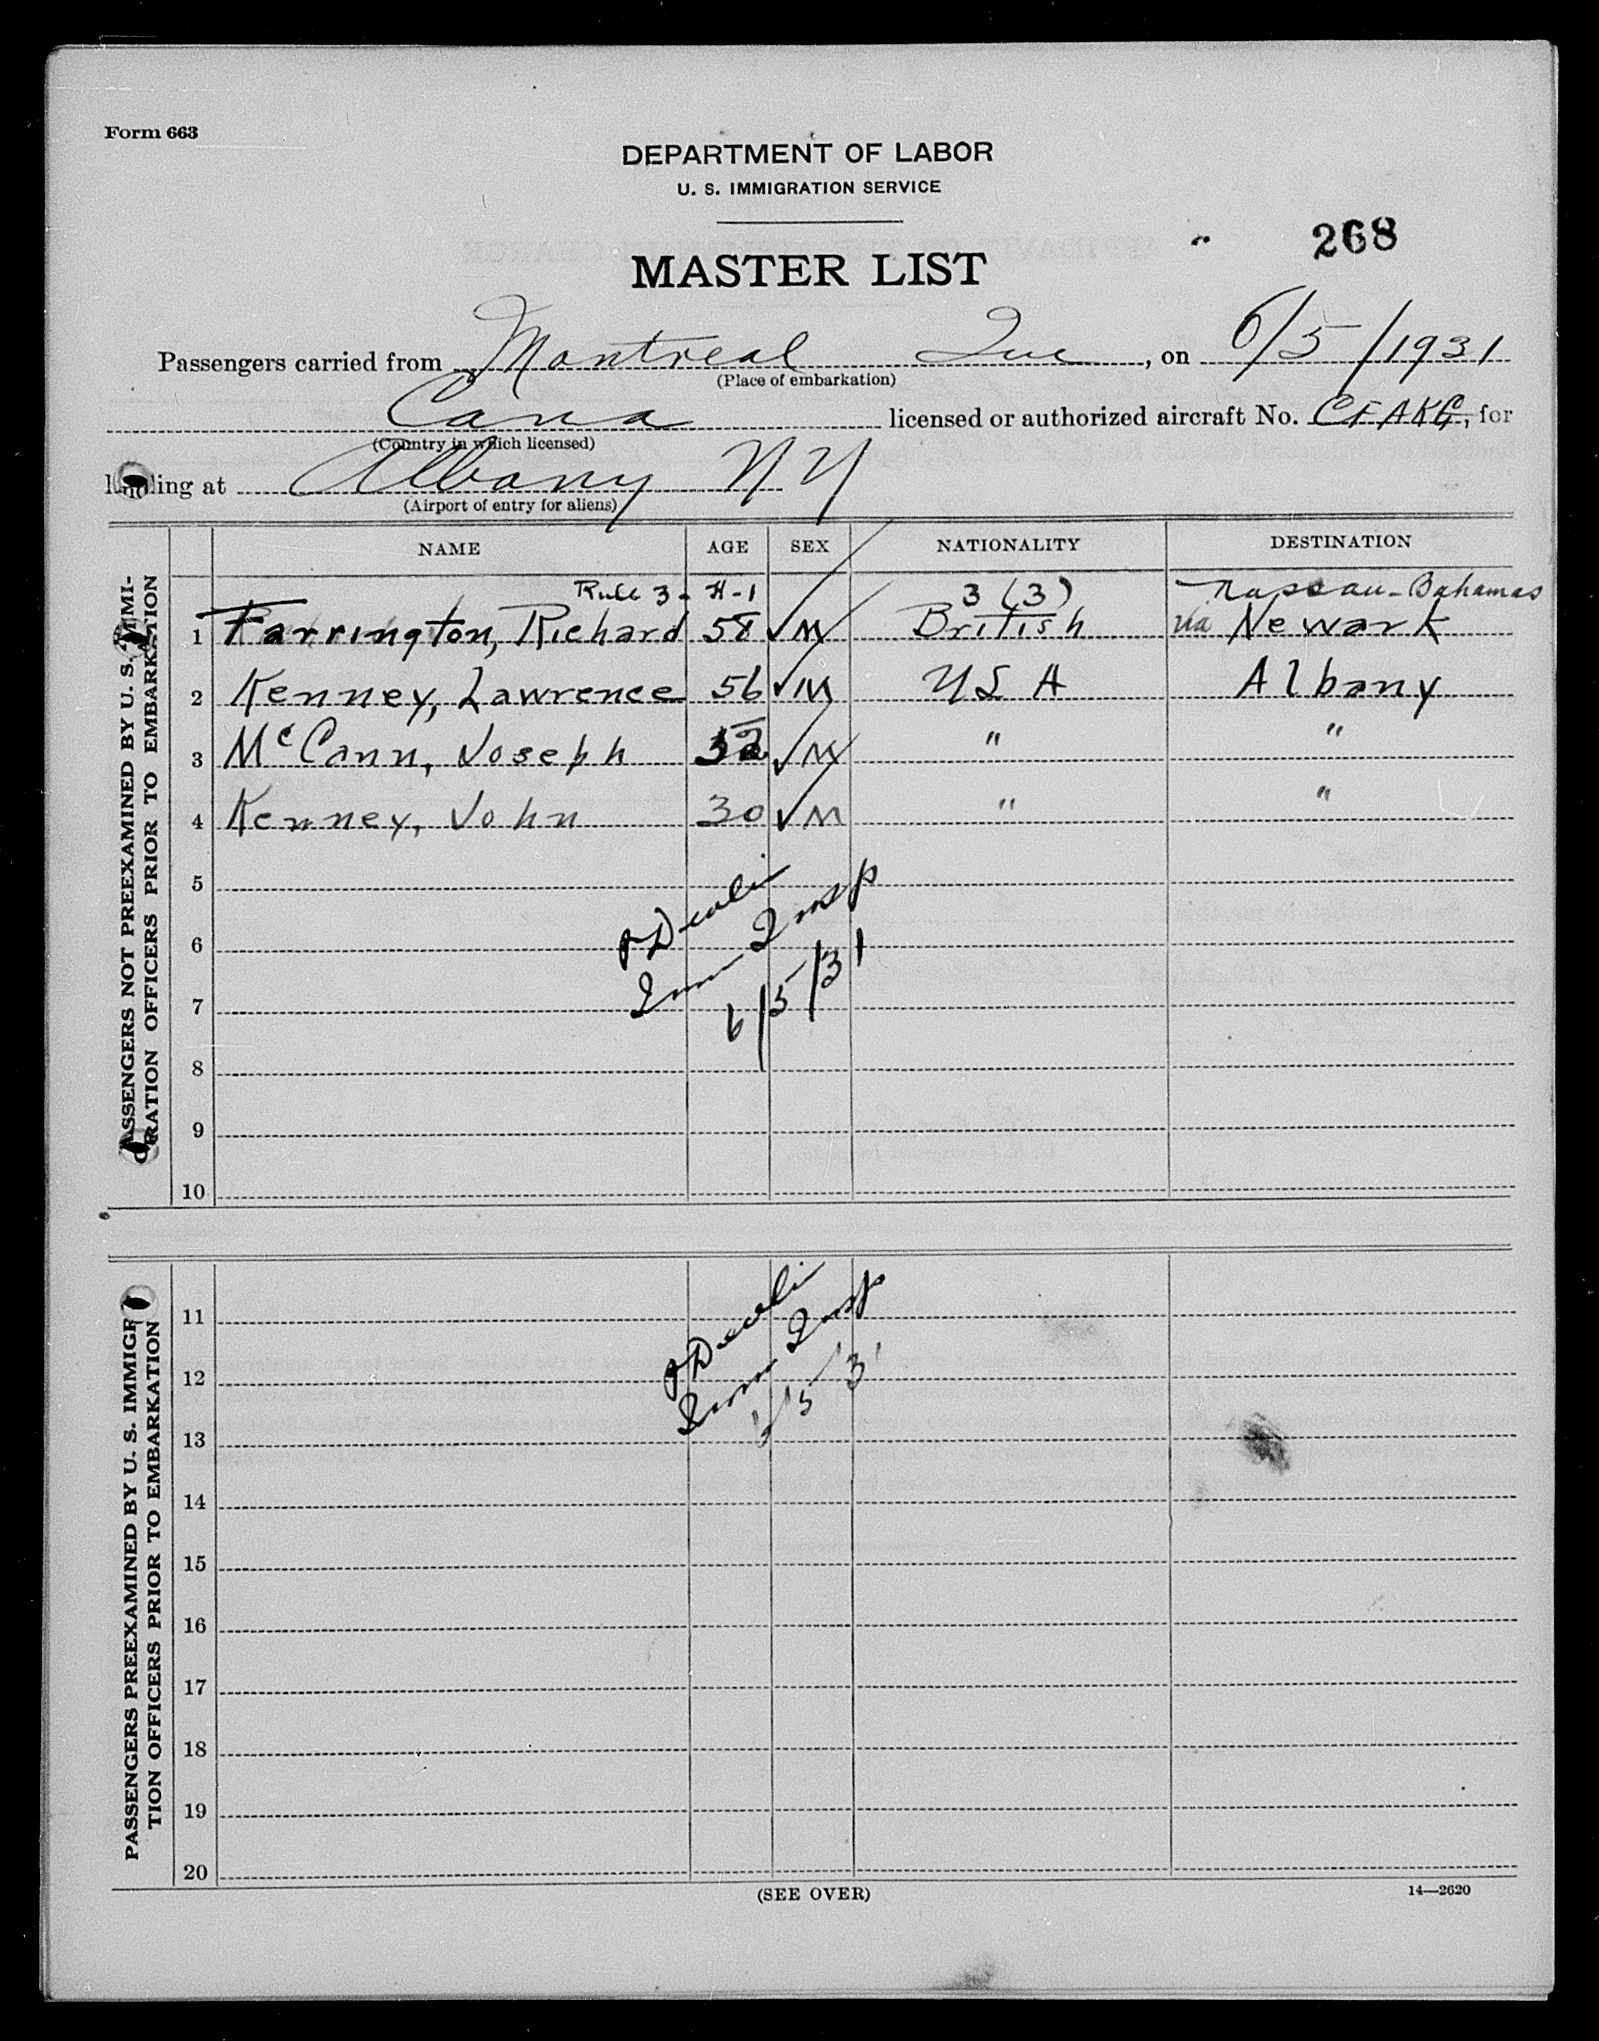 Form 663
DEPARTMENT OF LABOR
U. S. IMMIGRATION SERVICE
268
MASTER LIST
Passengers carried from Montreal Que, on 6/5/1931
(Place of embarkation)
Cana licensed or authorized aircraft No. CFAKG, for
(Country in which licensed)
landing at Albany NY
(Airport of entry for aliens)
NAME AGE SEX NATIONALITY DESTINATION
PASSENGERS NOT PREEXAMINED BY U. S. IMMI-
GRATION OFFICERS PRIOR TO EMBARKATION
Rule 3 - H-1 3 (3) Nassau - Bahamas
1 Farrington, Richard 58 ✓ M British via Newark
2 Kenney, Lawrence 56 ✓ M USA Albany
3 McCann, Joseph 52 ✓ M " "
4 Kenney, John 30 ✓ M " "
5
6
Imm Insp
7
6/5/31
8
9
10
PASSENGERS PREEXAMINED BY U. S. IMMIGRA-
TION OFFICERS PRIOR TO EMBARKATION
11
12
Imm Insp
6/5/31
13
14
15
16
17
18
19
20
(SEE OVER)
14—2620